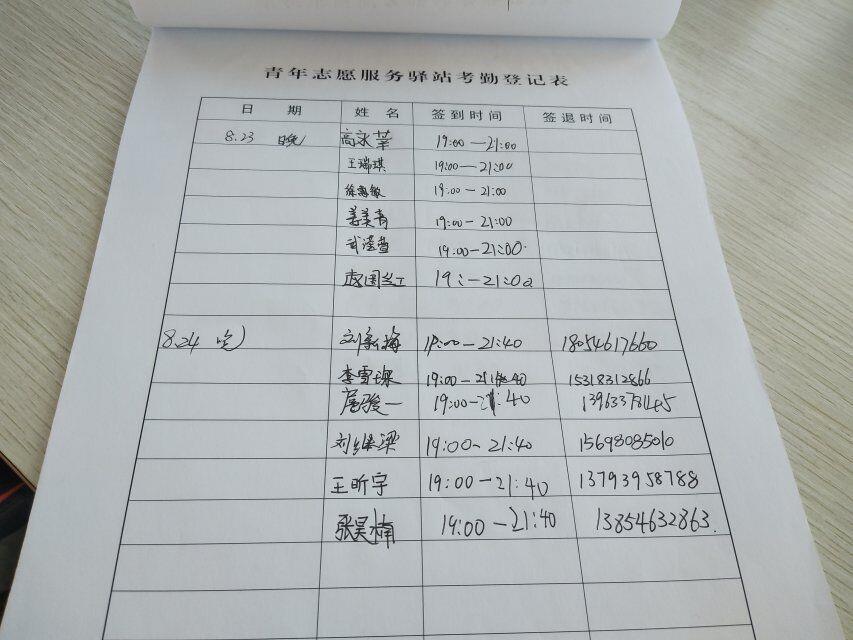 青年志愿服务驿站考勤登记表
日 期 姓 名 签到时间 签退时间
8.23 晚 高永苹 19:00—21:00
王瑞琪 19:00—21:00
徐惠敏 19:00—21:00
姜美青 19:00—21:00
19:00—21:00.
赵国红 19:—21:00
8.24 刘新梅 19:00—21:40 18054617660
李雪琛 19:00—21:40 15318312866
扈骏一 19:00—21:40 13963378145
刘继梁 19:00—21:40 15698085010
王昕宇 19:00—21:40 13793958788
张昊楠 19:00—21:40 13854632863.